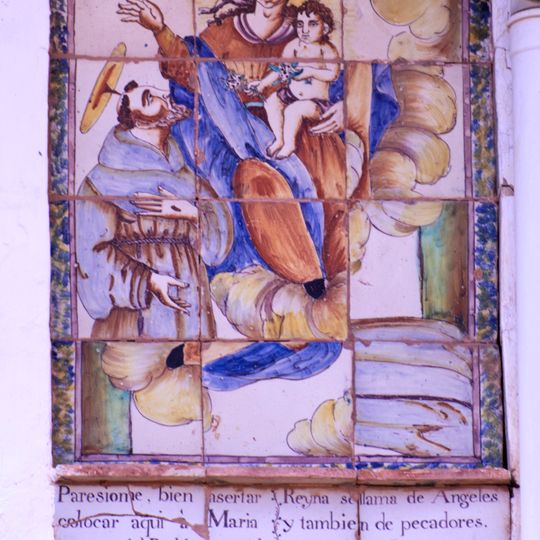 Paresiome, bien asertar Reyna se llama de Angeles
colocar aqui à Maria y tambien de pecadores.